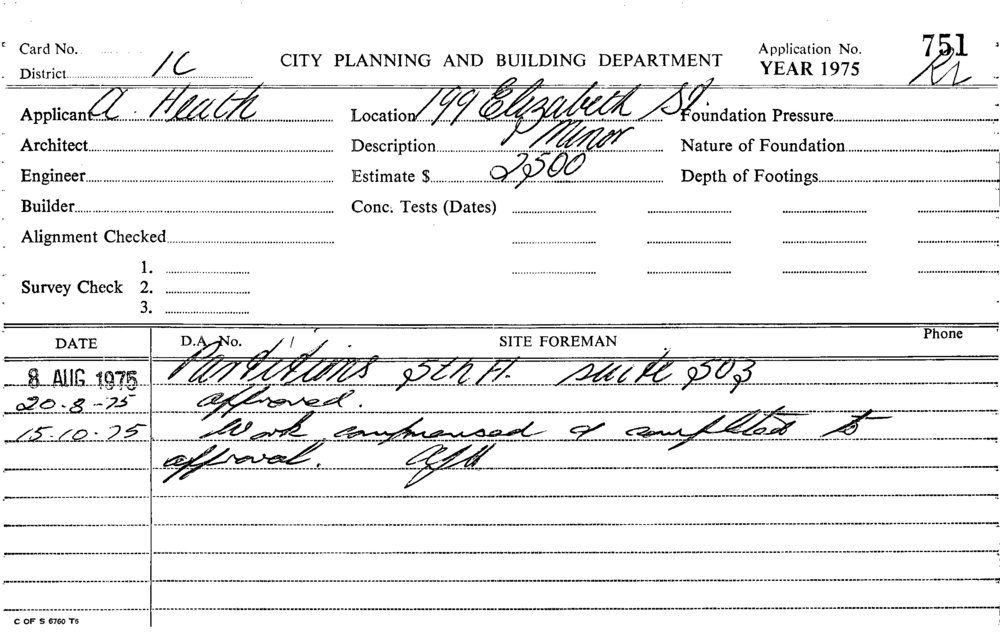 Card No.
District 1C
CITY PLANNING AND BUILDING DEPARTMENT
Application No. 751
YEAR 1975
Applicant A. Heath
Location 199 Elizabeth St
Foundation Pressure
Architect
Description Minor
Nature of Foundation
Engineer
Estimate $ 2,500
Depth of Footings
Builder
Conc. Tests (Dates)
Alignment Checked
Survey Check
1.
2.
3.
DATE
D.A. No.
SITE FOREMAN
Phone
8 AUG 1975 Partitions 5th Fl. suite 503
20-8-75 approved.
15.10.75 Work commensed & completed to
approval. AJH
C OF S 6760 T6